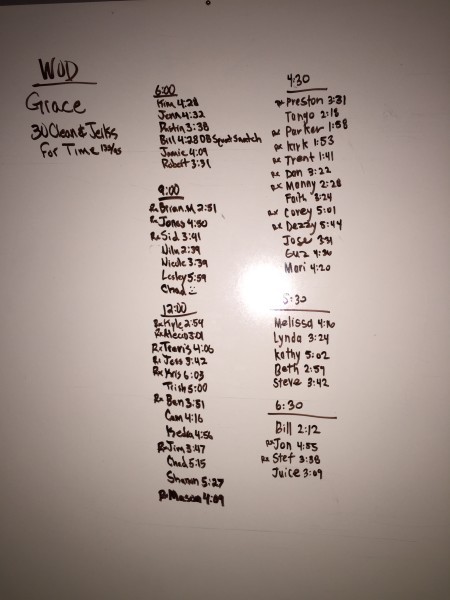 WOD
Grace
30 Clean & Jerks
For Time 135/95
6:00
Kim 4:28
Jonn 4:32
Dustin 3:38
Bill 4:28 DB Squat Snatch
Jamie 4:09
Robert 3:31
9:00
Rx Brian.M 2:51
Rx Jonas 4:50
Rx Sid 3:41
Niln 2:39
Nicole 3:39
Lesley 5:59
Chad
12:00
Rx Kyle 2:54
Rx Alecia 3:01
Rx Travis 4:06
Rx Jess 3:42
Rx Kris 6:03
Trish 5:00
Rx Ben 3:51
Cam 4:16
Kedra 4:56
Rx Jim 3:47
Chad 5:15
Shawn 5:27
Rx Mason 4:09
4:30
Rx Preston 3:31
Tango 2:18
Rx Parker 1:58
Rx Kirk 1:53
Rx Trent 1:41
Rx Don 3:22
Rx Manny 2:28
Faith 3:24
Rx Corey 5:01
Rx Dezzy 5:44
Jose 3:31
Guz 4:36
Mari 4:20
5:30
Melissa 4:16
Lynda 3:24
Kathy 5:02
Beth 2:59
Steve 3:42
6:30
Bill 2:12
Rx Jon 4:55
Rx Stef 3:38
Juice 3:09